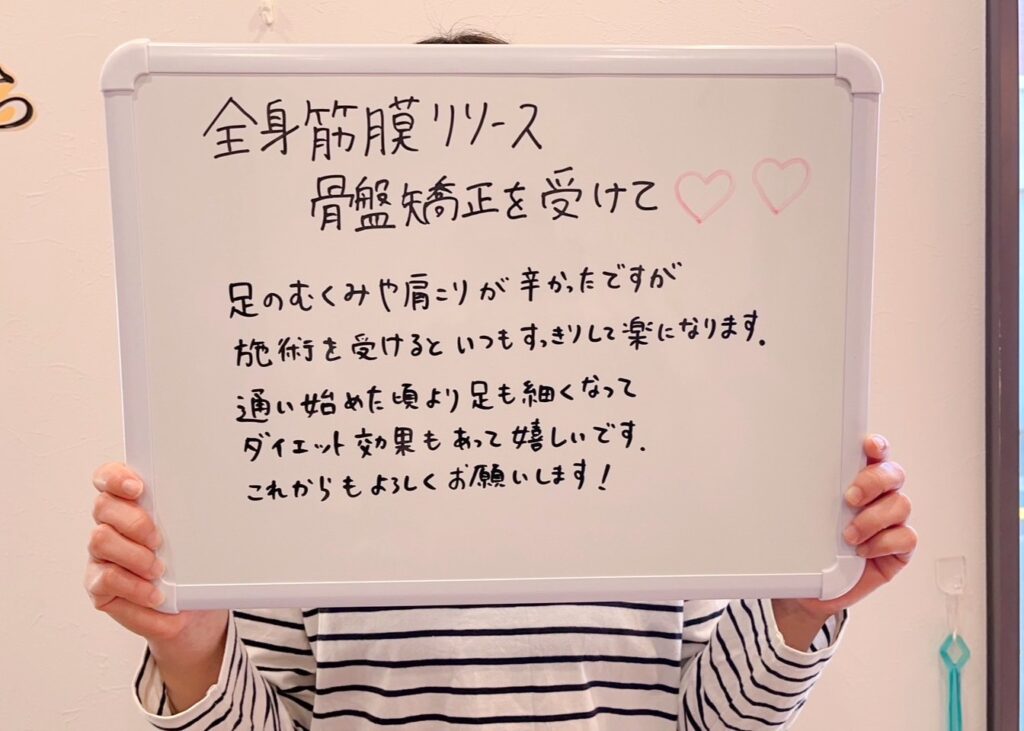 全身筋膜リリース
骨盤矯正を受けて♡♡
足のむくみや肩こりが辛かったですが
施術を受けるといつもすっきりして楽になります。
通い始めた頃より足も細くなって
ダイエット効果もあって嬉しいです。
これからもよろしくお願いします!